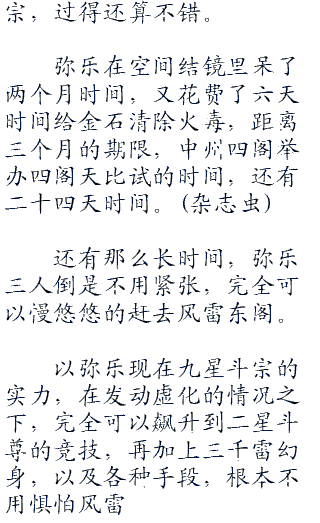 宗，过得还算不错。
弥乐在空间结镜里呆了
两个月时间，又花费了六天
时间给金石清除火毒，距离
三个月的期限，中州四阁举
办四阁天比试的时间，还有
二十四天时间。(杂志虫)
还有那么长时间，弥乐
三人倒是不用紧张，完全可
以慢悠悠的赶去风雷东阁。
以弥乐现在九星斗宗的
实力，在发动虚化的情况之
下，完全可以飙升到二星斗
尊的竞技，再加上三千雷幻
身，以及各种手段，根本不
用惧怕风雷